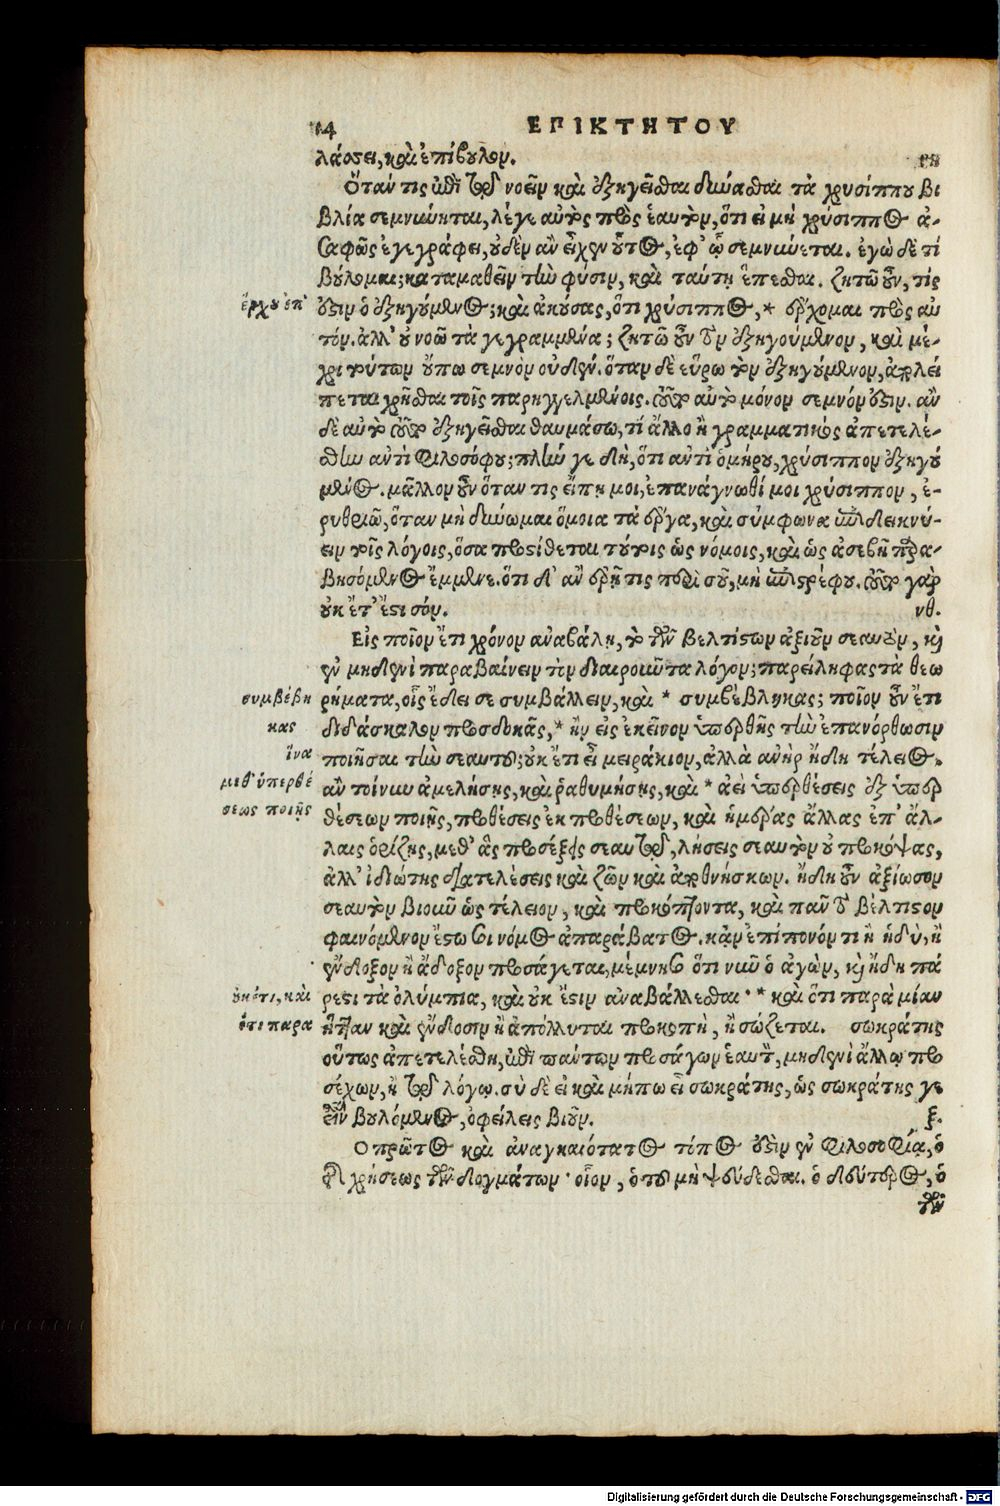 14 ΕΠΙΚΤΗΤΟΥ
λάσσει, καὶ ἐπίβουλον. νη
Ὅταν τις ἐπὶ τῷ νοεῖν καὶ ἐξηγεῖσθαι δύνασθαι τὰ χρυσίππου βι
βλία σεμνύνηται, λέγε αὐτὸς πρὸς ἑαυτὸν, ὅτι εἰ μὴ χρύσιππος ἀ-
σαφῶς ἐγεγράφει, οὐδὲν ἂν εἶχεν οὗτος, ἐφ' ᾧ σεμνύνεται. ἐγὼ δὲ τί
βούλομαι; καταμαθεῖν τὴν φύσιν, καὶ ταύτῃ ἕπεσθαι. ζητῶ οὖν, τίς
ἔρχου ἐπ' ἐστιν ὁ ἐξηγούμενος; καὶ ἀκούσας, ὅτι χρύσιππος, * ἔρχομαι πρὸς αὐ
τόν. ἀλλ' οὐ νοῶ τὰ γεγραμμένα; ζητῶ οὖν τὸν ἐξηγούμενον, καὶ μέ-
χρι τούτων οὔπω σεμνὸν οὐδέν. ὅταν δὲ εὕρω τὸν ἐξηγούμενον, ἀπολεί
πεται χρῆσθαι τοῖς παρηγγελμένοις. τοῦτο αὐτὸ μόνον σεμνόν ἐστιν. ἂν
δὲ αὐτὸ τοῦτο ἐξηγεῖσθαι θαυμάσω, τί ἄλλο ἢ γραμματικὸς ἀπετελέ-
σθην ἀντὶ φιλοσόφου; πλήν γε δὴ, ὅτι ἀντὶ ὁμήρου, χρύσιππον ἐξηγού
μενος. μᾶλλον οὖν ὅταν τις εἴπῃ μοι, ἐπανάγνωθί μοι χρύσιππον, ἐ-
ρυθριῶ, ὅταν μὴ δύνωμαι ὅμοια τὰ ἔργα, καὶ σύμφωνα ἐπιδεικνύ-
ειν τοῖς λόγοις, ὅσα προτίθεται τούτοις ὡς νόμοις, καὶ ὡς ἀσεβῆ παρα-
βησόμενος ἔμμενε. ὅτι δ' ἂν ἐρῇ τις περὶ σοῦ, μὴ ἐπιστρέφου. τοῦτο γὰρ
οὐκ ἔτ' ἔστι σόν. νθ.
Εἰς ποῖον ἔτι χρόνον ἀναβάλῃ, τὸ τῶν βελτίστων ἀξιοῦν σεαυτὸν, καὶ
ἐν μηδενὶ παραβαίνειν τὸν διαιροῦντα λόγον; παρείληφας τὰ θεω
συμβέβη ρήματα, οἷς ἔδει σε συμβάλλειν, καὶ * συμβέβληκας; ποῖον οὖν ἔτι
κας διδάσκαλον προσδοκᾷς, * ἢν εἰς ἐκεῖνον ὑπερθῇς τὴν ἐπανόρθωσιν
ἵνα ποιῆσαι τὴν σεαυτοῦ; οὐκ ἔτι εἶ μειράκιον, ἀλλὰ ἀνὴρ ἤδη τέλειος.
μεθ' ὑπερθέ ἂν τοίνυν ἀμελήσῃς, καὶ ῥαθυμήσῃς, καὶ * ἀεὶ ὑπερθέσεις ἐξ ὑπερ
σεως ποιῇς θέσεων ποιῇς, προθέσεις ἐκ προθέσεων, καὶ ἡμέρας ἄλλας ἐπ' ἄλ-
λαις ὁρίζῃς, μεθ' ἃς προσέξεις σεαυτῷ, λήσεις σεαυτὸν οὐ προκόψας,
ἀλλ' ἰδιώτης διατελέσεις καὶ ζῶν καὶ ἀποθνήσκων. ἤδη οὖν ἀξίωσον
σεαυτὸν βιοῦν ὡς τέλειον, καὶ προκόπτοντα, καὶ πᾶν τὸ βέλτιστον
φαινόμενον ἔστω σοι νόμος ἀπαράβατος. κἂν ἐπίπονόν τι ἢ ἡδὺ, ἢ
ἔνδοξον ἢ ἄδοξον προσάγεται, μέμνησο ὅτι νῦν ὁ ἀγὼν, καὶ ἤδη πά
οὐκέτι, καὶ ρεστι τὰ ὀλύμπια, καὶ οὐκ ἔστιν ἀναβάλλεσθαι· * καὶ ὅτι παρὰ μίαν
ὅτι παρὰ ἧτταν καὶ ἔνδοσιν ἢ ἀπόλλυται προκοπὴ, ἢ σώζεται. σωκράτης
οὕτως ἀπετελέσθη, ἐπὶ πάντων προσάγων ἑαυτὸν, μηδενὶ ἄλλῳ προ
σέχων, ἢ τῷ λόγῳ. σὺ δὲ εἰ καὶ μήπω εἶ σωκράτης, ὡς σωκράτης γε
εἶναι βουλόμενος, ὀφείλεις βιοῦν. ξ.
Ο πρῶτος καὶ ἀναγκαιότατος τόπος ἐστὶν ἐν φιλοσοφίᾳ, ὁ
τῆς χρήσεως τῶν δογμάτων· οἷον, ὁ τοῦ μὴ ψεύδεσθαι. ὁ δεύτερος, ὁ
τῶν
Digitalisierung gefördert durch die Deutsche Forschungsgemeinschaft - DFG